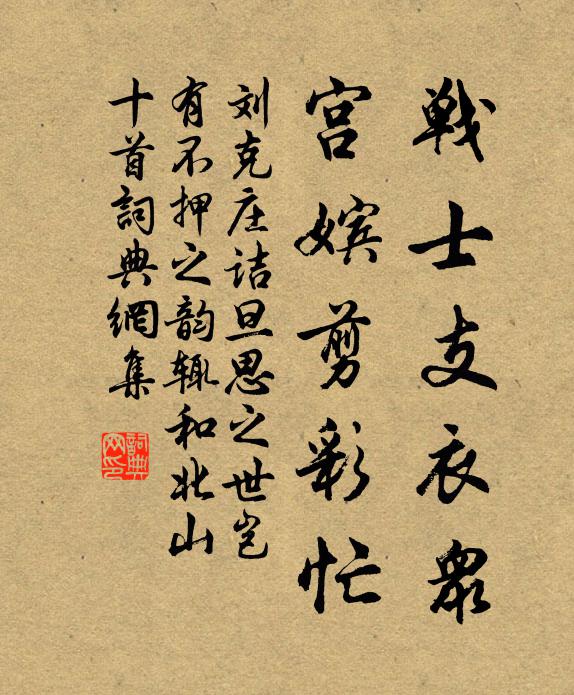 戰士支衣衆
宫嬪剪彩忙
刘克庄诘旦思之世岂
有不押之韵辄和北山
十首詞典網集
詞典网印